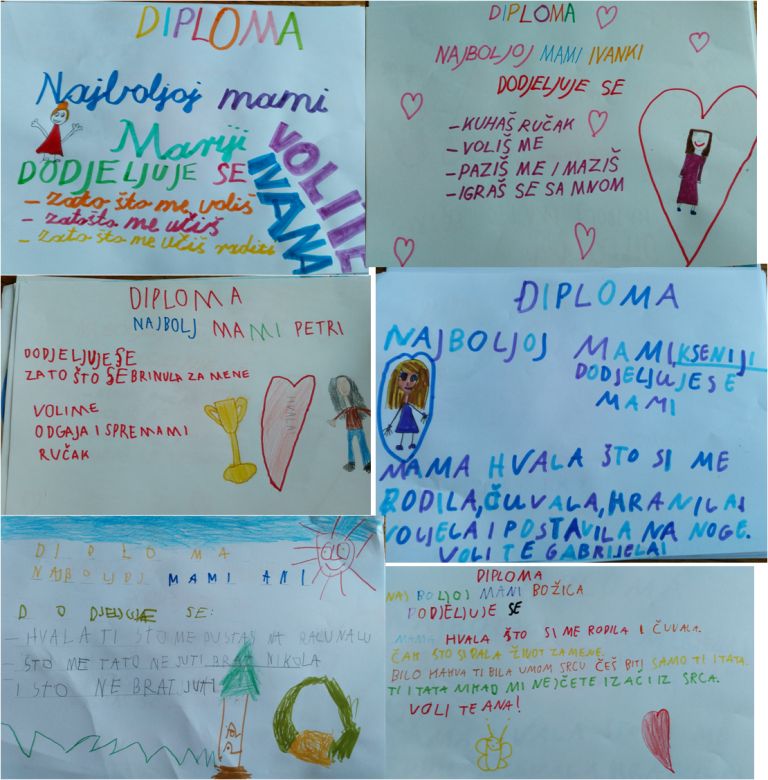 DIPLOMA
Najboljoj mami
Mariji
DODJELJUJE SE
- zato što me voliš
- zatošto me učiš
- zato što me učiš raditi
VOLI TE
IVANA
DIPLOMA
NAJBOLJOJ MAMI IVANKI
DODJELJUJE SE
- KUHAŠ RUČAK
- VOLIŠ ME
- PAZIŠ ME I MAZIŠ
- IGRAŠ SE SA MNOM
DIPLOMA
NAJBOLJ MAMI PETRI
DODJELJUJE SE
ZATO ŠTO SE BRINULA ZA MENE
VOLIME
ODGAJA I SPREMAMI
RUČAK
HVALA!
ĐIPLOMA
NAJBOLJOJ MAMI KSENIJI
DODJELJUJE SE
MAMI
MAMA HVALA ŠTO SI ME
RODILA, ČUVALA, HRANILA I
VOLJELA I POSTAVILA NA NOGE.
VOLI TE GABRIJELA!
DIPLOMA
NAJBOLJOJ MAMI ANI
DODJELJUJE SE:
- HVALA TI ŠTO ME PUSTAŠ NA RAČUNALU
- ŠTO ME TATO NE JUTI BRAT NIKOLA
I ŠTO NE BRAT JUTI
DIPLOMA
NAJBOLJOJ MAMI BOŽICA
DODJELJUJE SE
MAMA HVALA ŠTO SI ME RODILA I ČUVALA.
ČAK ŠTO SI DALA ŽIVOT ZA MENE.
BILO KAKVA TI BILA UMOM SRCU ČEŠ BITI SAMO TI I TATA.
TI I TATA NIKAD MI NEĆETE IZAĆI IZ SRCA.
VOLI TE ANA!